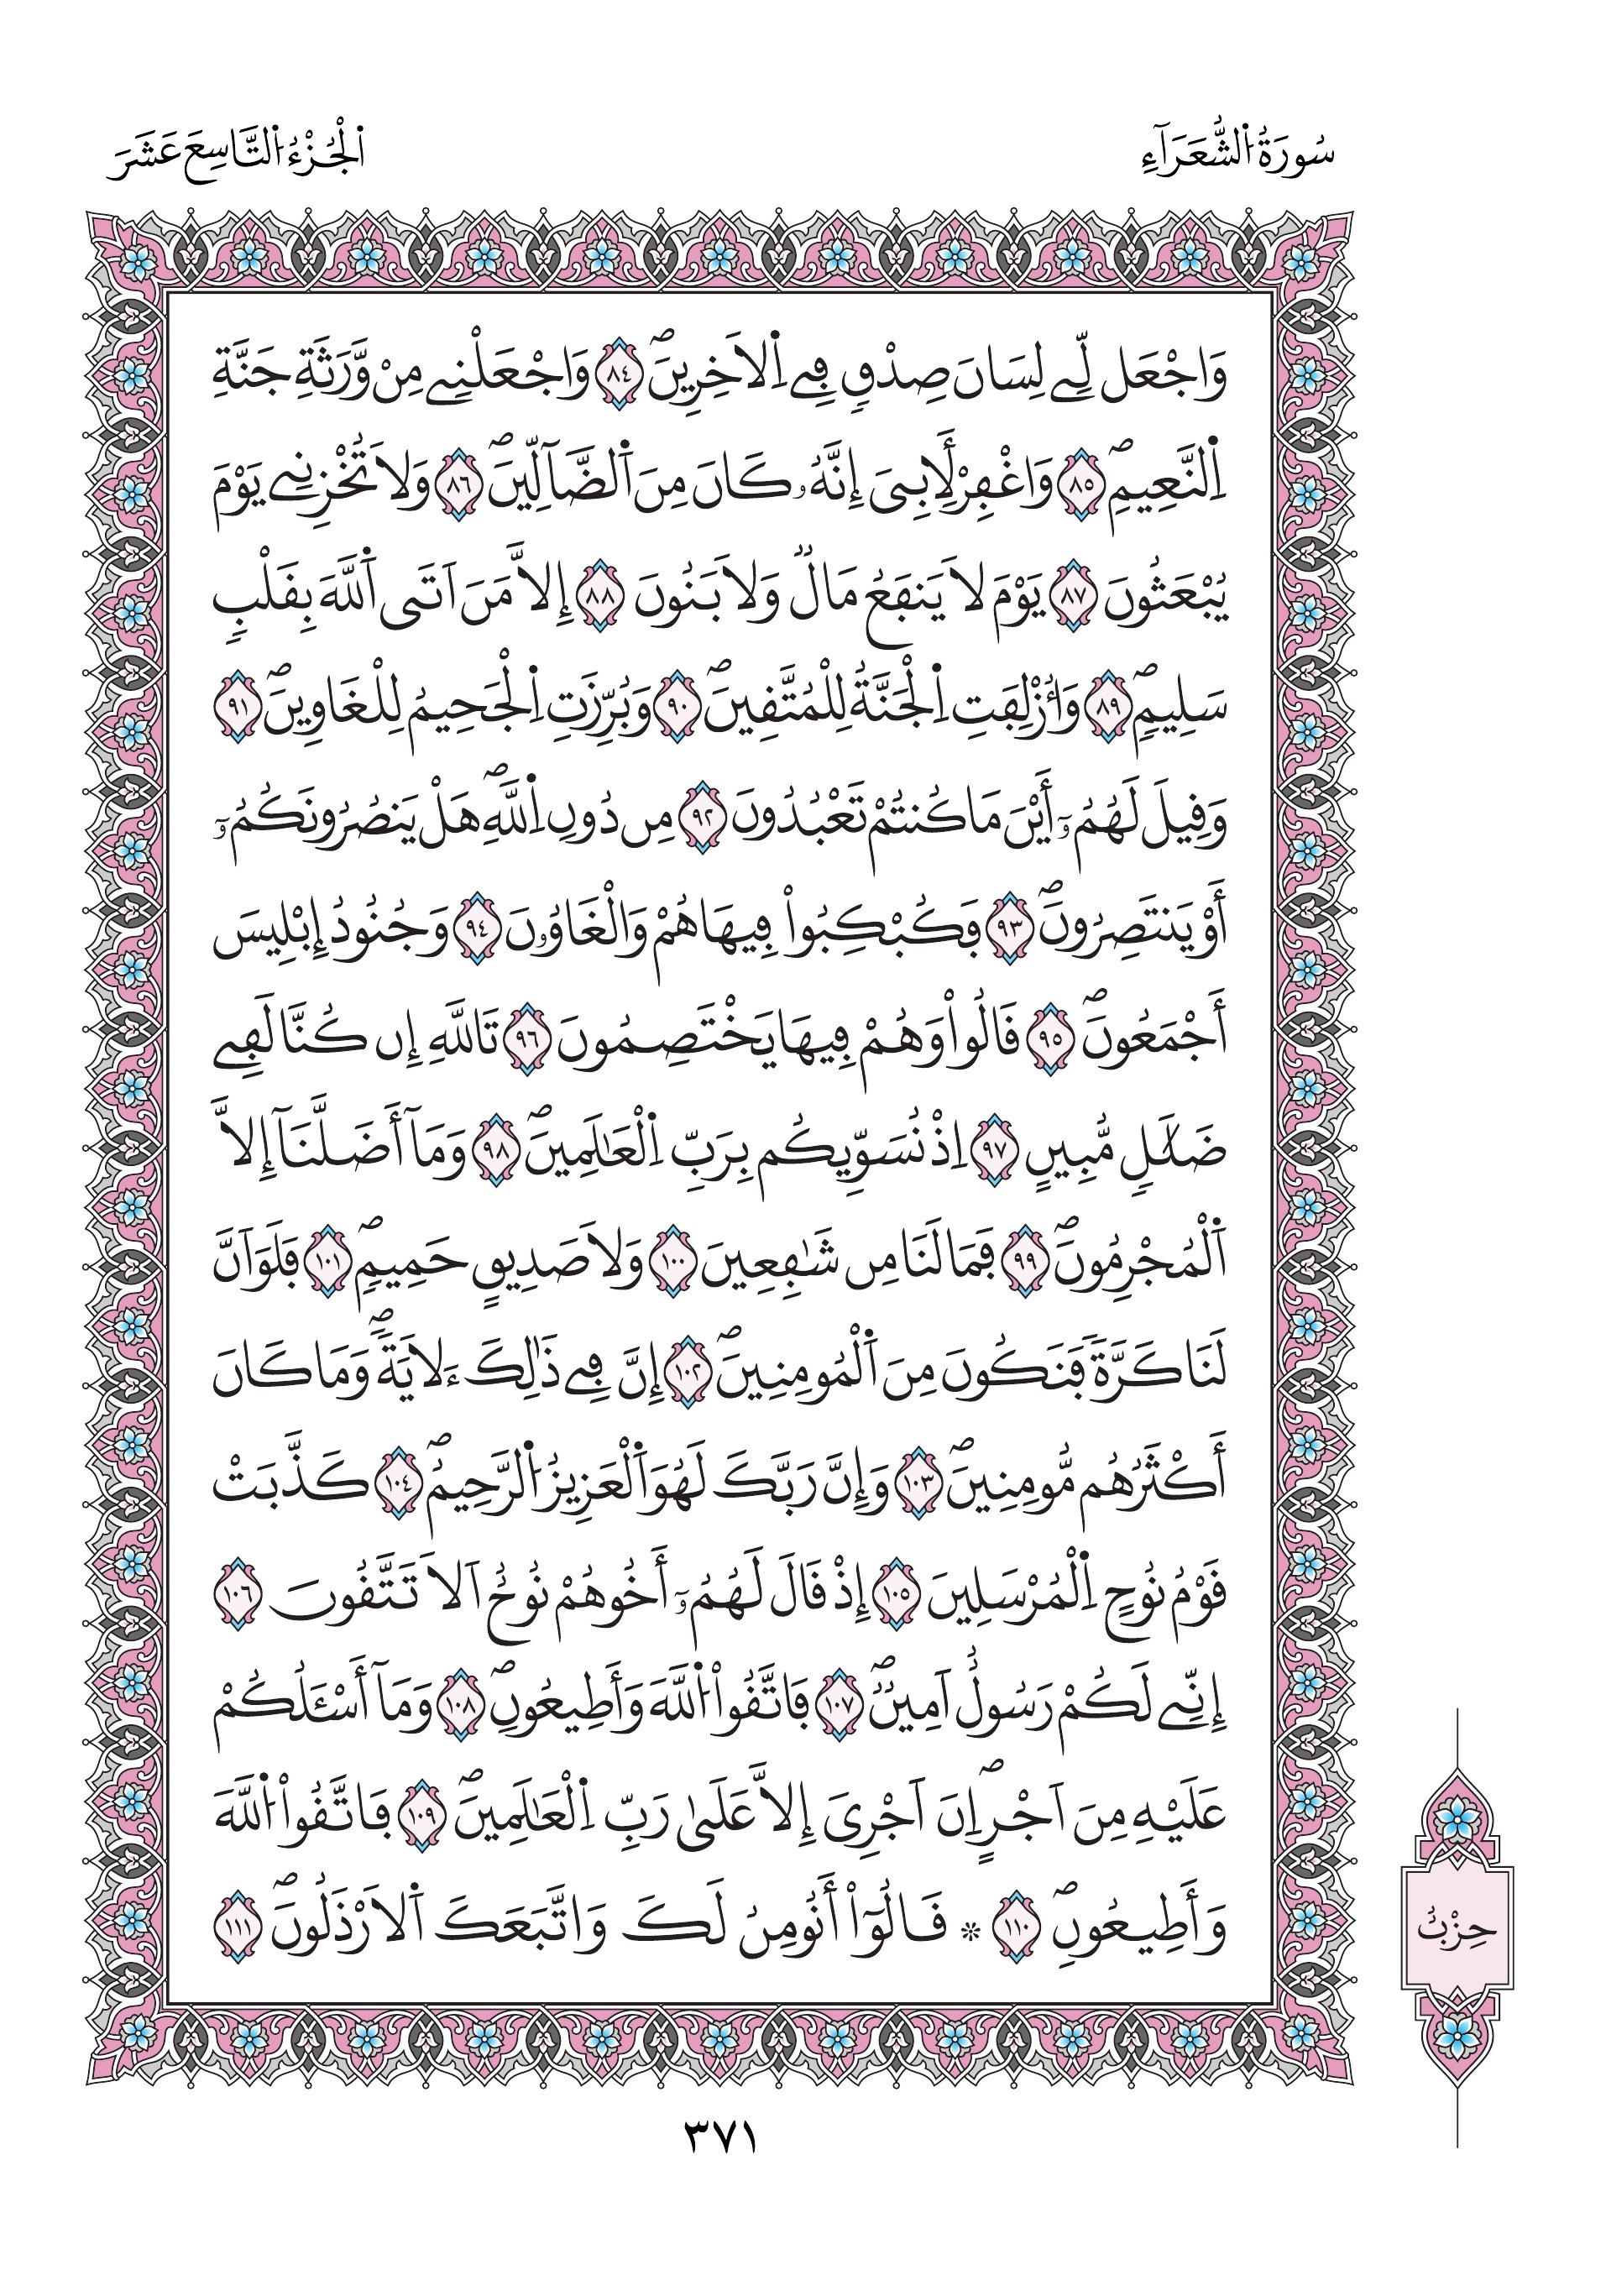 سُورَةُ اُ۬لشُّعَرَآءِ
اَ۬لْجُزْءُ اُ۬لتَّاسِعَ عَشَرَ
وَاجْعَل لِّے لِسَانَ صِدْقٖ فِے اِ۬لَاخِرِينَۖ ٨٤ وَاجْعَلْنِے مِنْ وَّرَثَةِ جَنَّةِ
اِ۬لنَّعِيمِۖ ٨٥ وَاغْفِرْ لِأَبِىَ إِنَّهُۥ كَانَ مِنَ اَ۬لضَّآلِّينَۖ ٨٦ وَلَا تُخْزِنِے يَوْمَ
يُبْعَثُونَ ٨٧ يَوْمَ لَا يَنفَعُ مَالٞ وَلَا بَنُونَ ٨٨ إِلَّا مَنَ اَتَى اَ۬للَّهَ بِقَلْبٖ
سَلِيمٖۖ ٨٩ وَأُزْلِفَتِ اِ۬لْجَنَّةُ لِلْمُتَّقِينَۖ ٩٠ وَبُرِّزَتِ اِ۬لْجَحِيمُ لِلْغَاوِينَۖ ٩١
وَقِيلَ لَهُمُۥٓ أَيْنَ مَا كُنتُمْ تَعْبُدُونَ ٩٢ مِن دُونِ اِ۬للَّهِۖ هَلْ يَنصُرُونَكُمُۥٓ
أَوْ يَنتَصِرُونَۖ ٩٣ فَكُبْكِبُواْ فِيهَا هُمْ وَالْغَاوُۥنَ ٩٤ وَجُنُودُ إِبْلِيسَ
أَجْمَعُونَۖ ٩٥ قَالُواْ وَهُمْ فِيهَا يَخْتَصِمُونَ ٩٦ تَاللَّهِ إِن كُنَّا لَفِے
ضَلَٰلٖ مُّبِينٍ ٩٧ اِذْ نُسَوِّيكُم بِرَبِّ اِ۬لْعَٰلَمِينَۖ ٩٨ وَمَآ أَضَلَّنَآ إِلَّا
اَ۬لْمُجْرِمُونَۖ ٩٩ فَمَا لَنَا مِن شَٰفِعِينَ ١٠٠ وَلَا صَدِيقٍ حَمِيمٖۖ ١٠١ فَلَوَ اَنَّ
لَنَا كَرَّةٗ فَنَكُونَ مِنَ اَ۬لْمُومِنِينَۖ ١٠٢ إِنَّ فِے ذَٰلِكَ ءَلَايَةٗۖ وَمَا كَانَ
أَكْثَرُهُم مُّومِنِينَۖ ١٠٣ وَإِنَّ رَبَّكَ لَهُوَ اَ۬لْعَزِيزُ اُ۬لرَّحِيمُۖ ١٠٤ كَذَّبَتْ
قَوْمُ نُوحٍ اِ۬لْمُرْسَلِينَ ١٠٥ إِذْ قَالَ لَهُمُۥٓ أَخُوهُمْ نُوحٌ اَلَا تَتَّقُونَ ١٠٦
إِنِّے لَكُمْ رَسُولٌ اَمِينٞۖ ١٠٧ فَاتَّقُواْ اُ۬للَّهَ وَأَطِيعُونِۖ ١٠٨ وَمَآ أَسْـَٔلُكُمْ
عَلَيْهِ مِنَ اَجْرٍۖ اِنَ اَجْرِىَ إِلَّا عَلَىٰ رَبِّ اِ۬لْعَٰلَمِينَۖ ١٠٩ فَاتَّقُواْ اُ۬للَّهَ
وَأَطِيعُونِۖ ١١٠ * قَالُوٓاْ أَنُومِنُ لَكَ وَاتَّبَعَكَ اَ۬لَارْذَلُونَۖ ١١١
حِزْبٌ
٣٧١